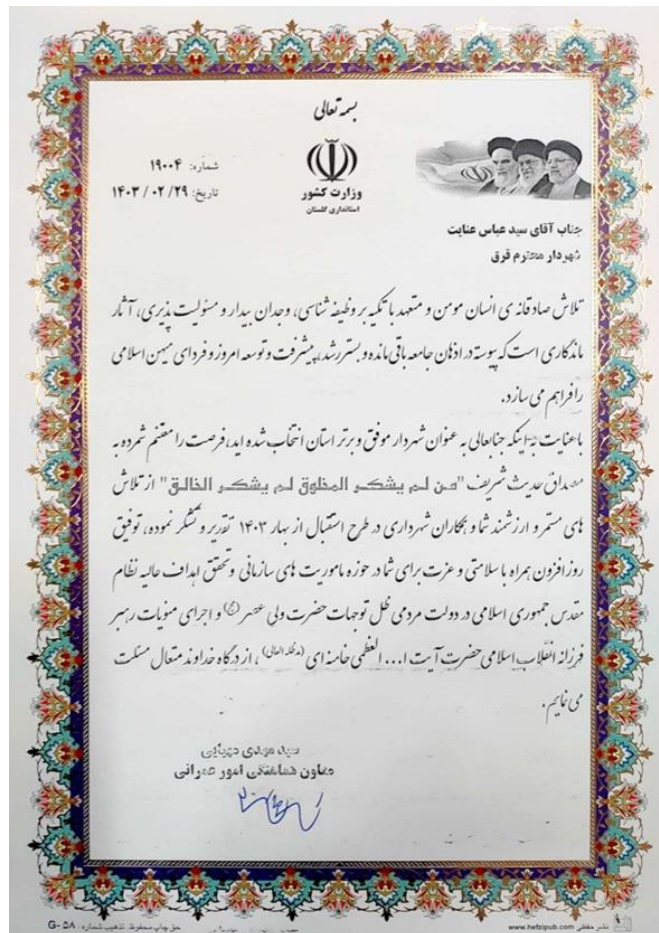 بسمه تعالی
شماره: ۱۹۰۰۴
تاریخ: ۱۴۰۳/۰۲/۲۹
وزارت کشور
استانداری گلستان
جناب آقای سید عباس عنایت
شهردار محترم قرق
تلاش صادقانه ی انسان مومن و متعهد با تکیه بر وظیفه شناسی، وجدان بیدار و مسئولیت پذیری، آثار
ماندگاری است که پیوسته در اذهان جامعه باقی مانده و بستر رشد، پیشرفت و توسعه امروز و فردای میهن اسلامی
را فراهم می سازد.
با عنایت به اینکه جنابعالی به عنوان شهردار موفق و برتر استان انتخاب شده اید، فرصت را مغتنم شمرده به
مصداق حدیث شریف "من لم یشکر المخلوق لم یشکر الخالق" از تلاش
های مستمر و ارزشمند شما و همکاران شهرداری در طرح استقبال از بهار ۱۴۰۳ تقدیر و تشکر نموده، توفیق
روز افزون همراه با سلامتی و عزت برای شما در حوزه ماموریت های سازمانی و تحقق اهداف عالیه نظام
مقدس جمهوری اسلامی در دولت مردمی ظل توجهات حضرت ولی عصر (عج) و اجرای منویات رهبر
فرزانه انقلاب اسلامی حضرت آیت ا... العظمی خامنه ای (مدظله العالی)، از درگاه خداوند متعال مسئلت
می نمایم.
سید مهدی
معاون هماهنگی امور عمرانی
نشر حفظی www.hefzipub.com
حق چاپ محفوظ. تذهیب شماره: G-۵۸